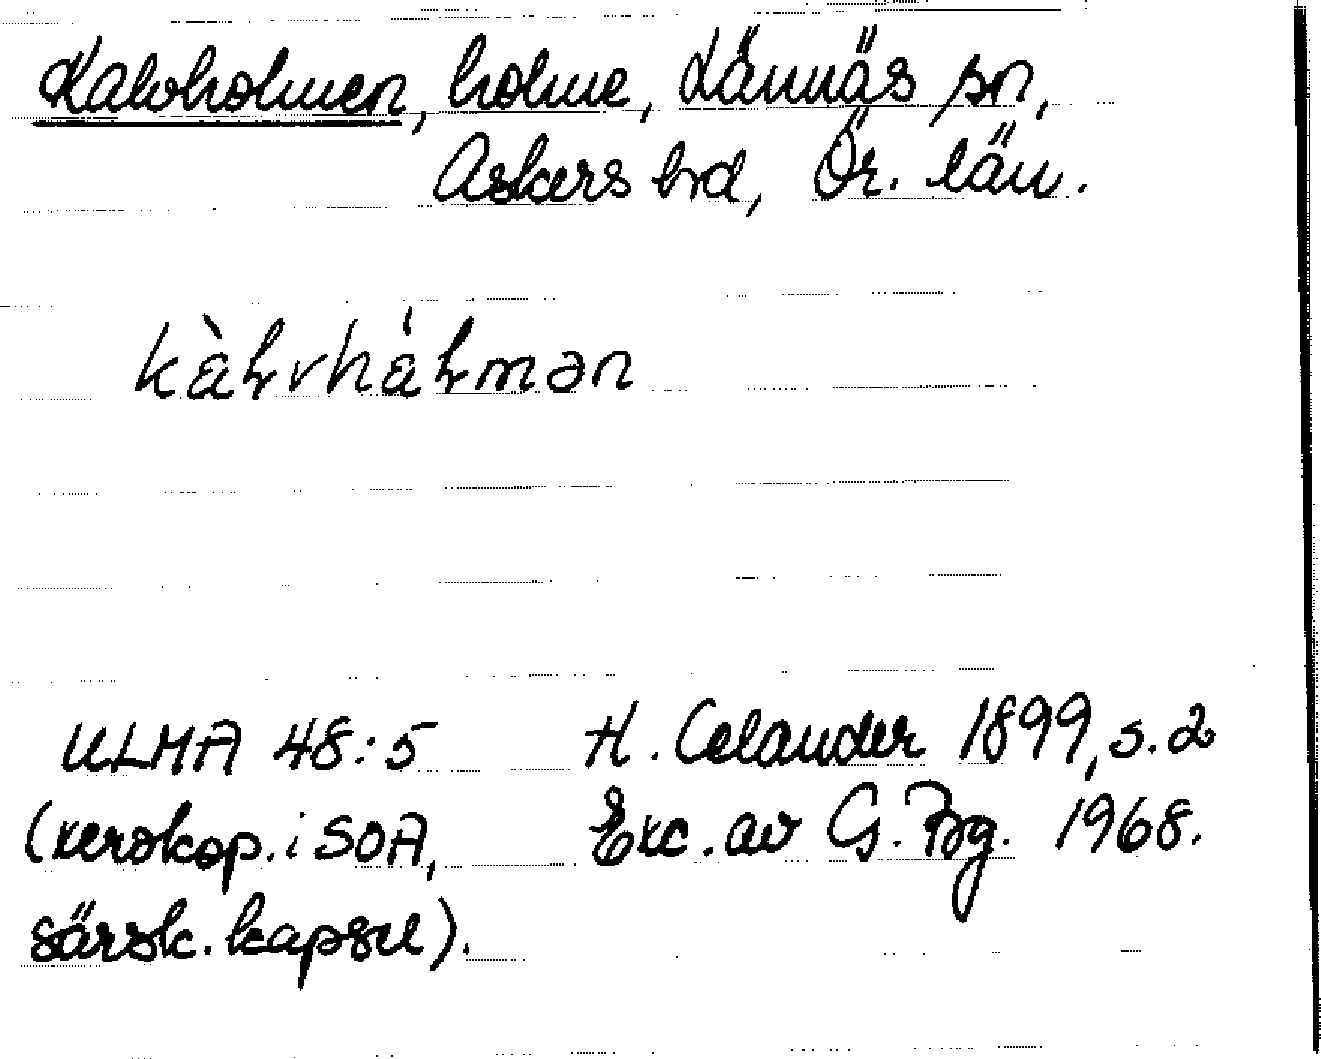 Kalvholmen, holme, Lännäs sn,
Askers hd, Ör. län.
kàɫvhåɫmən
ULMA 48:5 H. Celander 1899, s. 2
(xerokop. i SOA, Exc. av G. Bg. 1968.
särsk. kapsel).